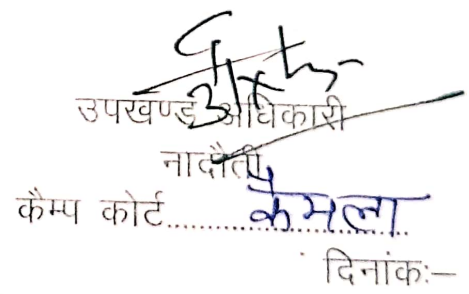 उपखण्ड अधिकारी
नादौती
कैम्प कोर्ट.......कैमला.......
दिनांक:–